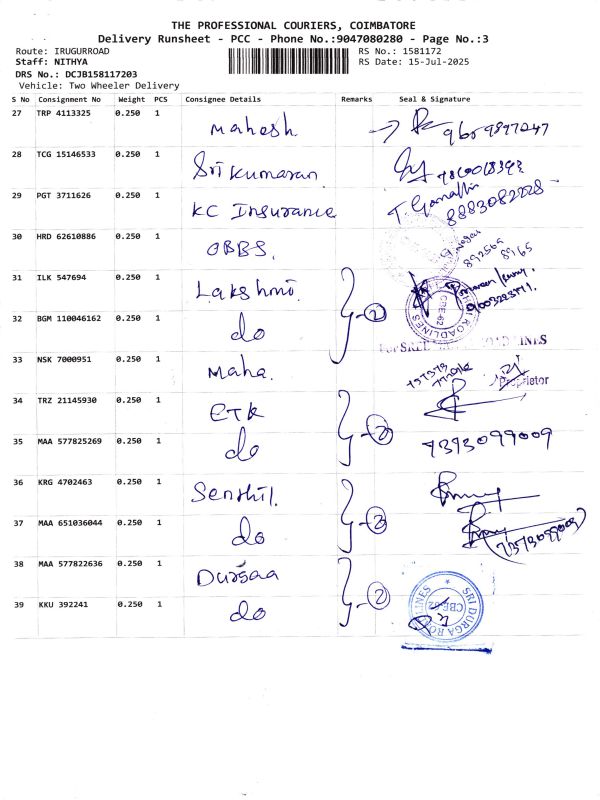 THE PROFESSIONAL COURIERS, COIMBATORE
Delivery Runsheet - PCC - Phone No.:9047080280 - Page No.:3
Route: IRUGURROAD RS No.: 1581172
Staff: NITHYA RS Date: 15-Jul-2025
DRS No.: DCJB158117203
Vehicle: Two Wheeler Delivery
S No Consignment No Weight PCS Consignee Details Remarks Seal & Signature
27 TRP 4113325 0.250 1 Mahesh
28 TCG 15146533 0.250 1 Sri Kumaran
29 PGT 3711626 0.250 1 KC Insurance 8883082228
30 HRD 62610886 0.250 1 OBBS.
31 ILK 547694 0.250 1 Lakshmi 2
CBE-62
32 BGM 110046162 0.250 1 do
33 NSK 7000951 0.250 1 Maha.
Proprietor
34 TRZ 21145930 0.250 1 ETK 2
35 MAA 577825269 0.250 1 do 7373099009
36 KRG 4702463 0.250 1 Senthil. 2
37 MAA 651036044 0.250 1 do
38 MAA 577822636 0.250 1 Durgaa 2
39 KKU 392241 0.250 1 do
SRI DURGA ROADLINES
CBE-62